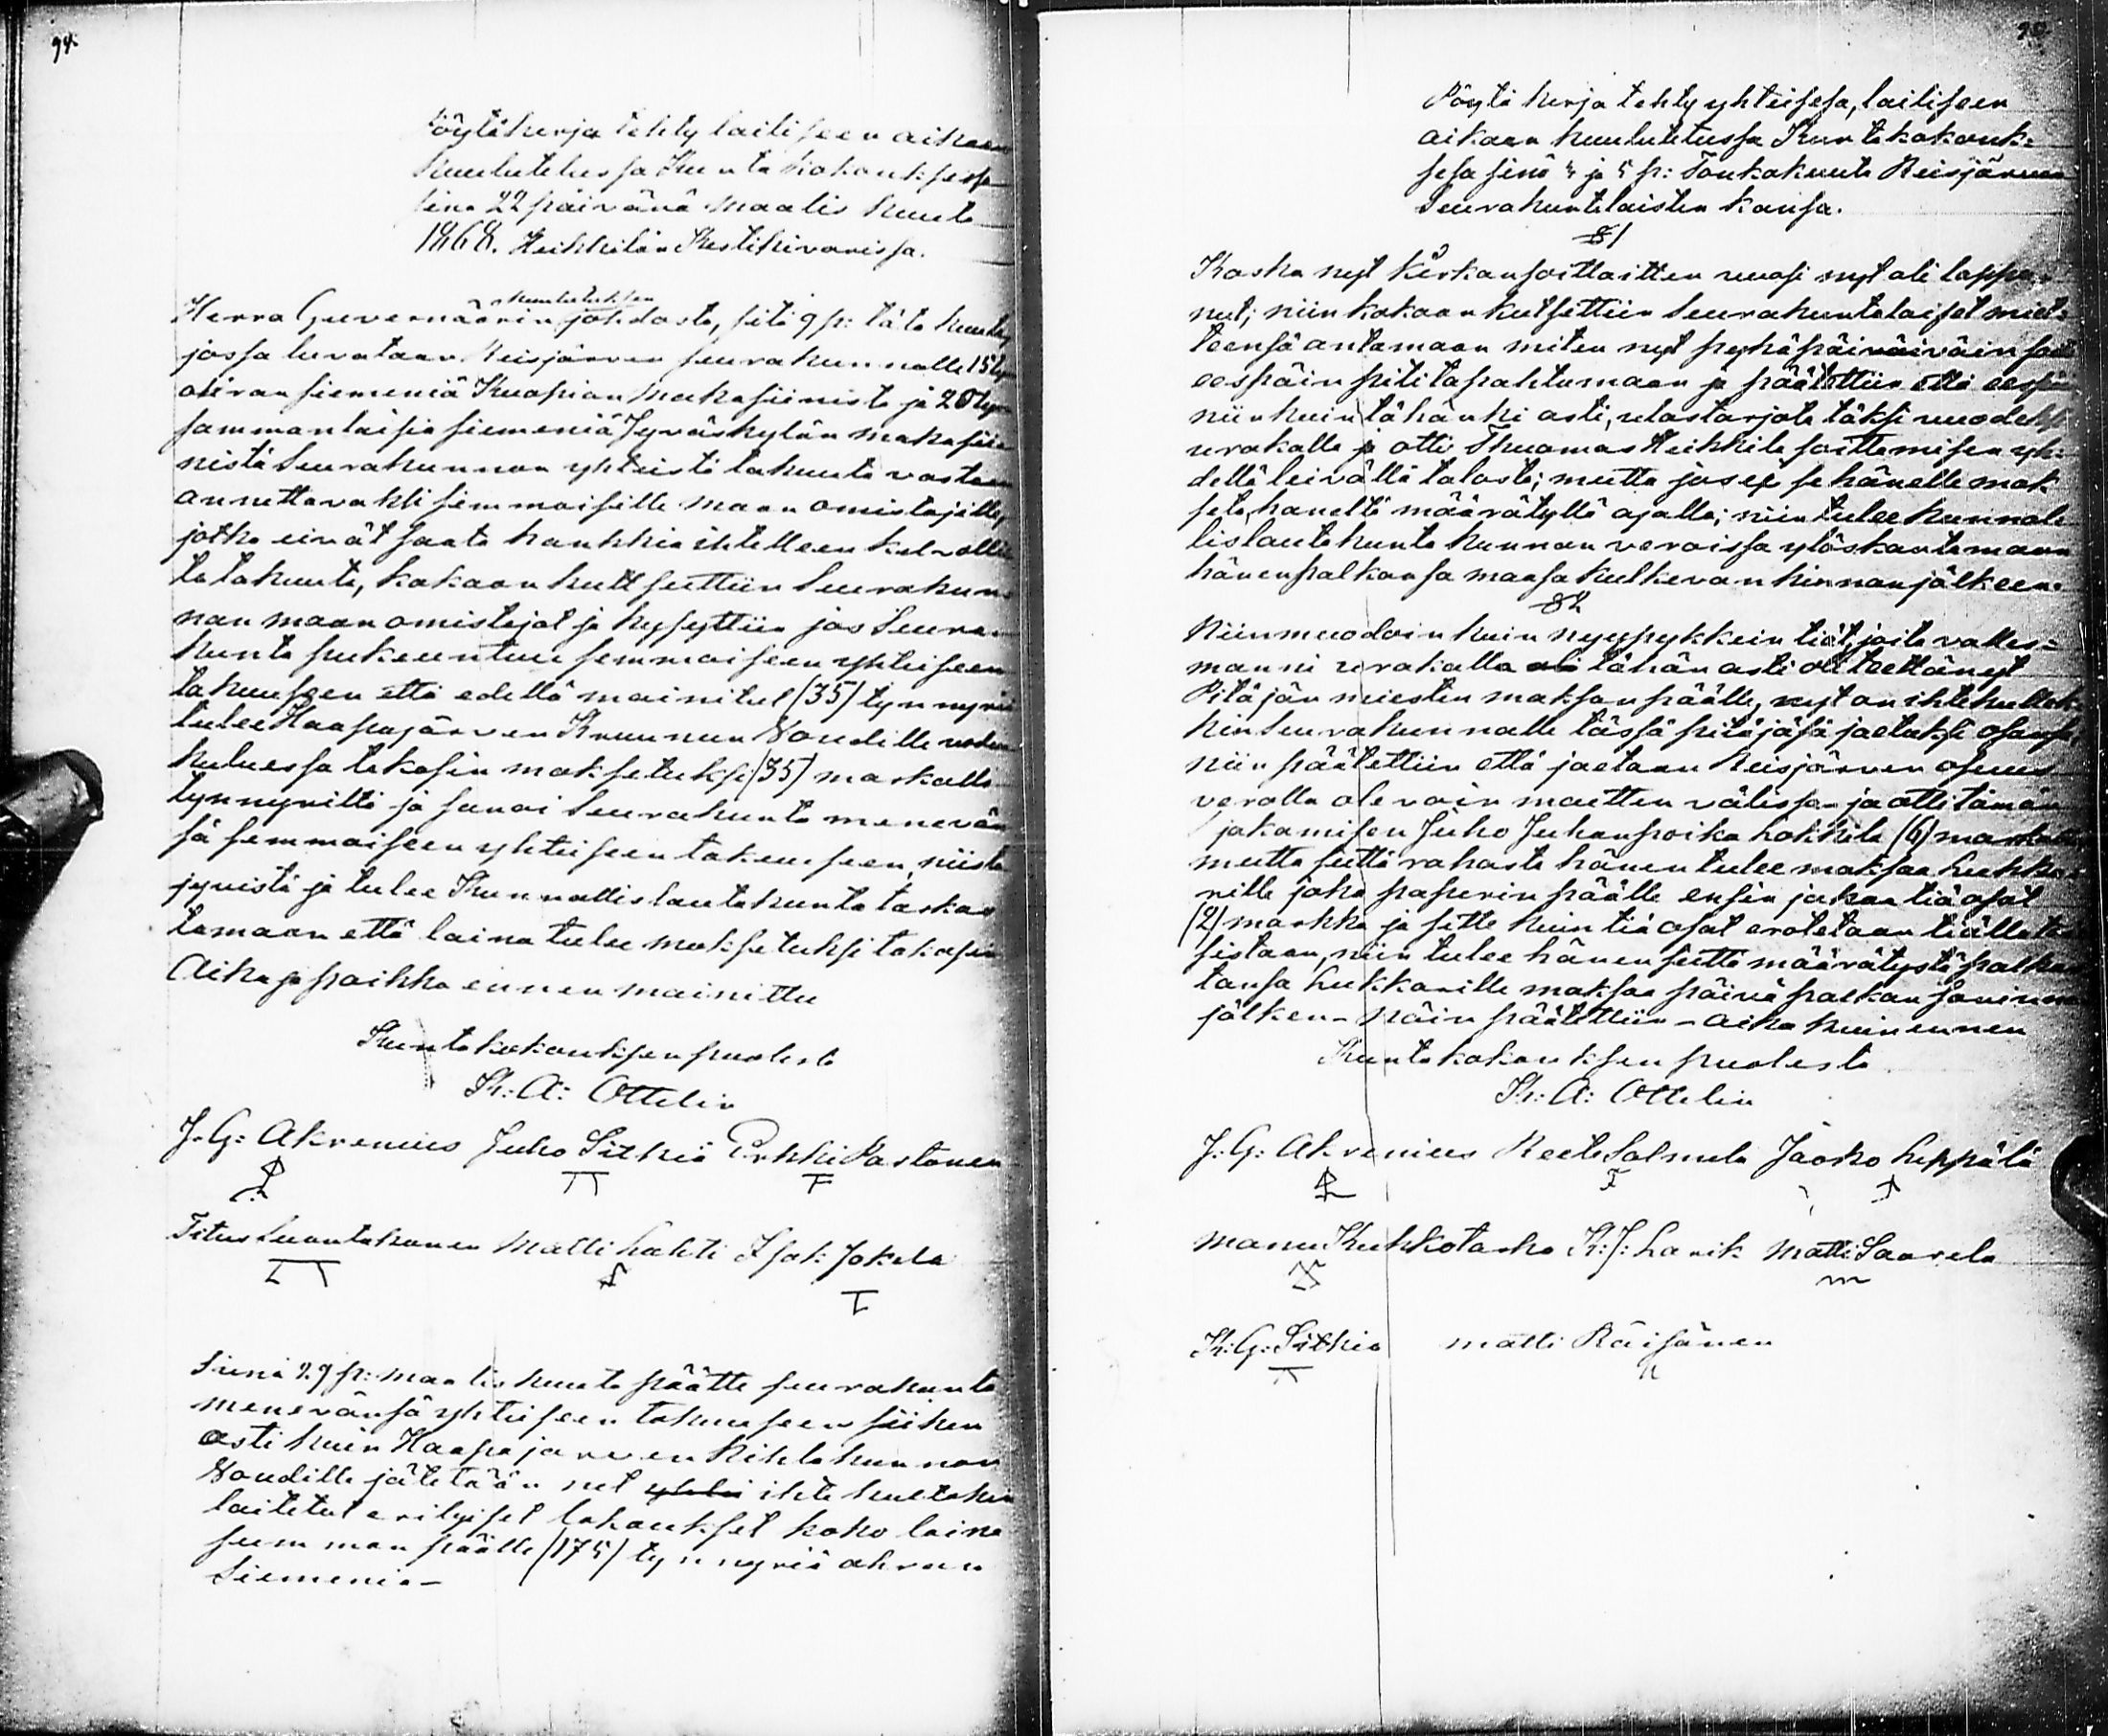 94.
Pöytäkirja tehty lailiseen aikaan
kuulutetussa Kunta kokouksessa
sinä 22 päivänä maalis kuuta
1868. Heikkilän Kestikivarissa.
Herra Guvernäärin kuulutuksen johdosta, sitä 9 p: tätä kuuta,
jossa luvataan Reisjärven seurakunnalle 15 tyn
ohran siemeniä Kuopion makasiinista ja 20 tyn
sammanlaisia siemeniä Jyväskylän makasii
nista Seurakunnan yhteistä takuuta vastaan
annettavaksi semmoisille maan omistajille,
jotka eivät saata hankkia ihtelleen kelvollis
ta takuuta, kokoon kuttsuttiin Seurakun
nan maan omistajat ja kysyttiin jos Seura
kunta pukeuntuu semmoiseen yhteiseen
takuuseen että edellä mainitut (35) tynnyriä
tulee Haapajärven Kruunun Voudille vuden
kuluessa takasin maksetuksi (35) markalla
tynnyriltä ja sanoi Seurakunta menevän
sä semmoiseen yhteiseen takuuseen, niistä
jyvistä ja tulee Kunnallislautakunta taskas
tamaan että laina tulee maksetuksi takasin
Aika ja paikka ennen mainittu
Kunta kokouksen puolesta
K: A: Ottelin
J. G: Akrenius Juho Sitkiä Erkki Parttanen
Titus Luontahanen Matti Lahti Isak Jokela
Sinä 29 p: maaliskuuta päätti seurakunta
menevänsä yhteiseen takuuseen siihen
asti kuin Haapajärven Kihlakunnan
Voudille jätetään net yhtei ihtekultakin
laitetut erityiset lakaukset koko laina
summan päälle (175) tynnyriä ohran
Siemeniä-
95
Pöytä kirja tehty yhteisesä, lailiseen
aikaan kuulutetussa Kunta kokouk=
sesa sinä 4 ja 5 p: Toukokuuta Reisjärven
Seurakuntalaisten kansa.
§ 1
Koska nyt kirkansoittaitten vuosi nyt oli loppu
nut; niin kokoon kutsuttiin Seurakuntalaiset miet=
teensä antamaan miten nyt pyhäpäiväiväin soi
eespäin piti tapahtumaan ja päätettiin että eespäin
niinkuin tähänki asti, ulostarjota täksi vuodeksi
urakalla ja otti Thuomas Heikkilä soittamisen yh=
dellä leivällä talosta; mutta jos ei se hänelle mak
seta, hanellä määrätyllä ajalla; niin tulee kunnal
lislautakunta kunnan veroissa ylöskantamaan
hänen palkansa maasa kulkevan hinnan jälkeen.
§ 2
Niinmuodoin kuin nyypykkein tiät, joita valles=
manni urakalla oli tähän asti oli teettänyt
Pitäjän miesten maksun päälle, nyt on ihtekullek
kin Seurakunnalle tässä pitäjäsä jaetuksi osansa,
niin päätettiin että jaetaan Reisjärven osuus
veralla olevain maetten välissä- ja otti tämän
jakamisen Juho Juhanpoika Kokkila (6) markalla
mutta siittä rahasta hänen tulee maksaa Lukka
rille joka paperin päälle ensin jakaa tiä osat
(2) markka ja sitte kuin tiä osat erotetaan tiällak
sistaan, niin tulee hänen siittä määrätystä palkas
tansa Lukkarille maksaa päivä palkan sovinnon
jälken- näin päätettiin- aika kuin ennen
Kunta kokouksen puolesta
K: A: Ottelin
J: G: Akrenius Reeli Salmela Jaako Leppälä
Manu Kukkotasko K: J: Lavik Matti Saarela
K: G: Sitkiä Matti Räisänen